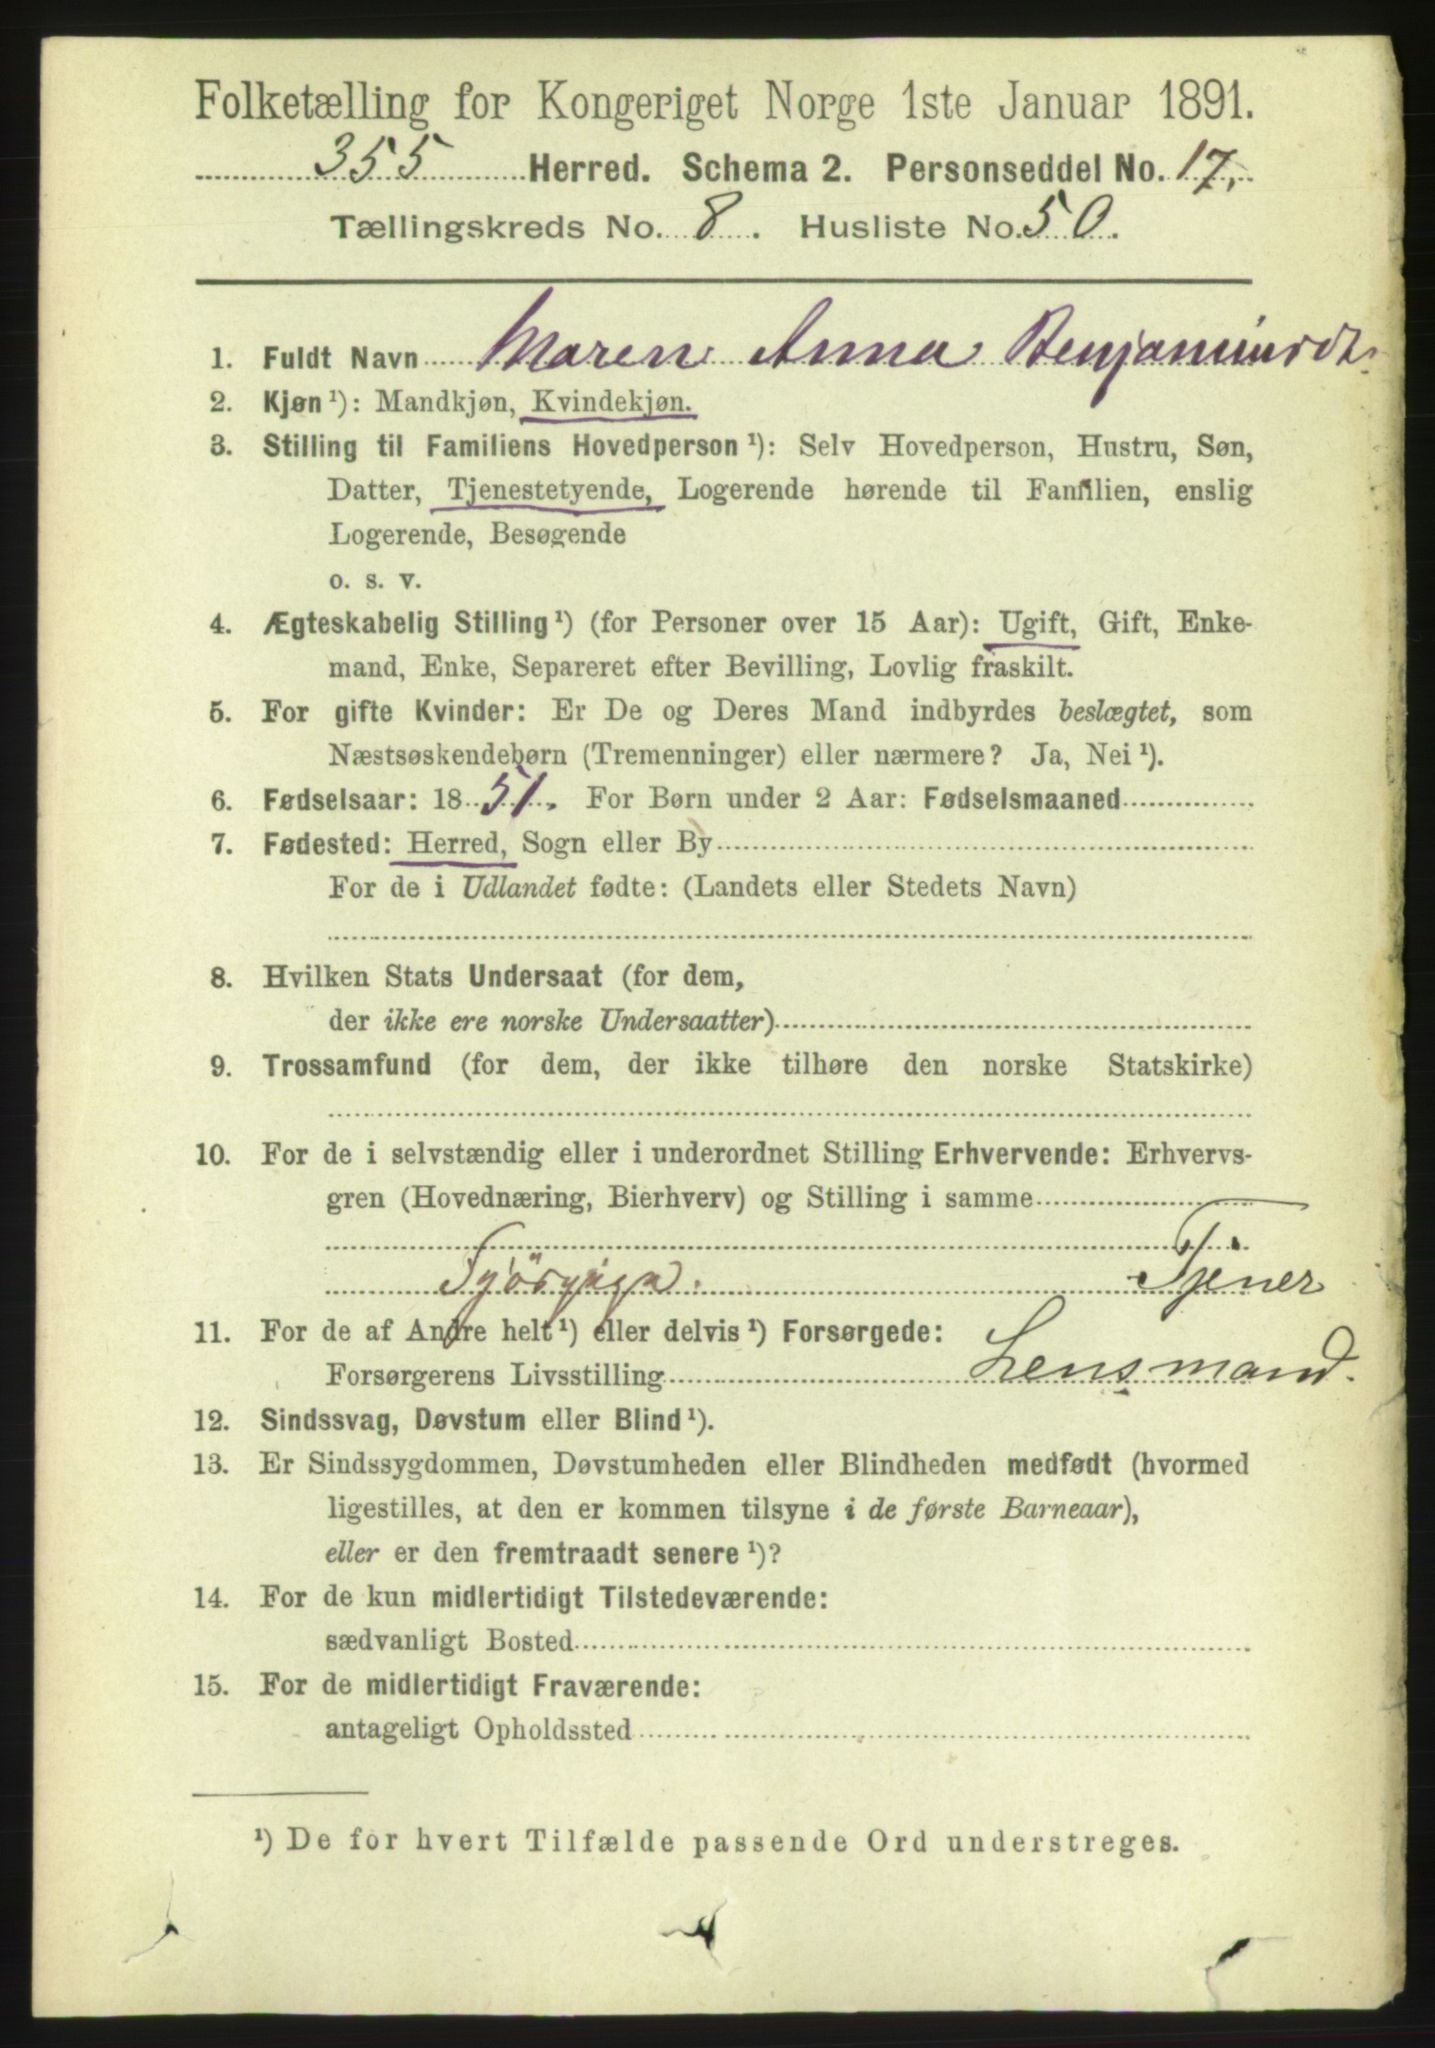 Folketælling for Kongeriget Norge 1ste Januar 1891.
355 Herred. Schema 2. Personseddel No. 17.
Tællingskreds No. 8. Husliste No. 50.
1. Fuldt Navn Maren Anna Benjaminsdt.
2. Kjøn ¹): Mandkjøn, Kvindekjøn.
3. Stilling til Familiens Hovedperson ¹): Selv Hovedperson, Hustru, Søn,
Datter, Tjenestetyende, Logerende hørende til Familien, enslig
Logerende, Besøgende
o. s. v.
4. Ægteskabelig Stilling ¹) (for Personer over 15 Aar): Ugift, Gift, Enke-
mand, Enke, Separeret efter Bevilling, Lovlig fraskilt.
5. For gifte Kvinder: Er De og Deres Mand indbyrdes beslægtet, som
Næstsøskendebørn (Tremenninger) eller nærmere? Ja, Nei ¹).
6. Fødselsaar: 1851. For Børn under 2 Aar: Fødselsmaaned
7. Fødested: Herred, Sogn eller By
For de i Udlandet fødte: (Landets eller Stedets Navn)
8. Hvilken Stats Undersaat (for dem,
der ikke ere norske Undersaatter)
9. Trossamfund (for dem, der ikke tilhøre den norske Statskirke)
10. For de i selvstændig eller i underordnet Stilling Erhvervende: Erhvervs-
gren (Hovednæring, Bierhverv) og Stilling i samme
Tjener
11. For de af Andre helt ¹) eller delvis ¹) Forsørgede:
Forsørgerens Livsstilling Lensmand.
12. Sindssvag, Døvstum eller Blind ¹).
13. Er Sindssygdommen, Døvstumheden eller Blindheden medfødt (hvormed
ligestilles, at den er kommen tilsyne i de første Barneaar),
eller er den fremtraadt senere ¹)?
14. For de kun midlertidigt Tilstedeværende:
sædvanligt Bosted
15. For de midlertidigt Fraværende:
antageligt Opholdssted
¹) De for hvert Tilfælde passende Ord understreges.